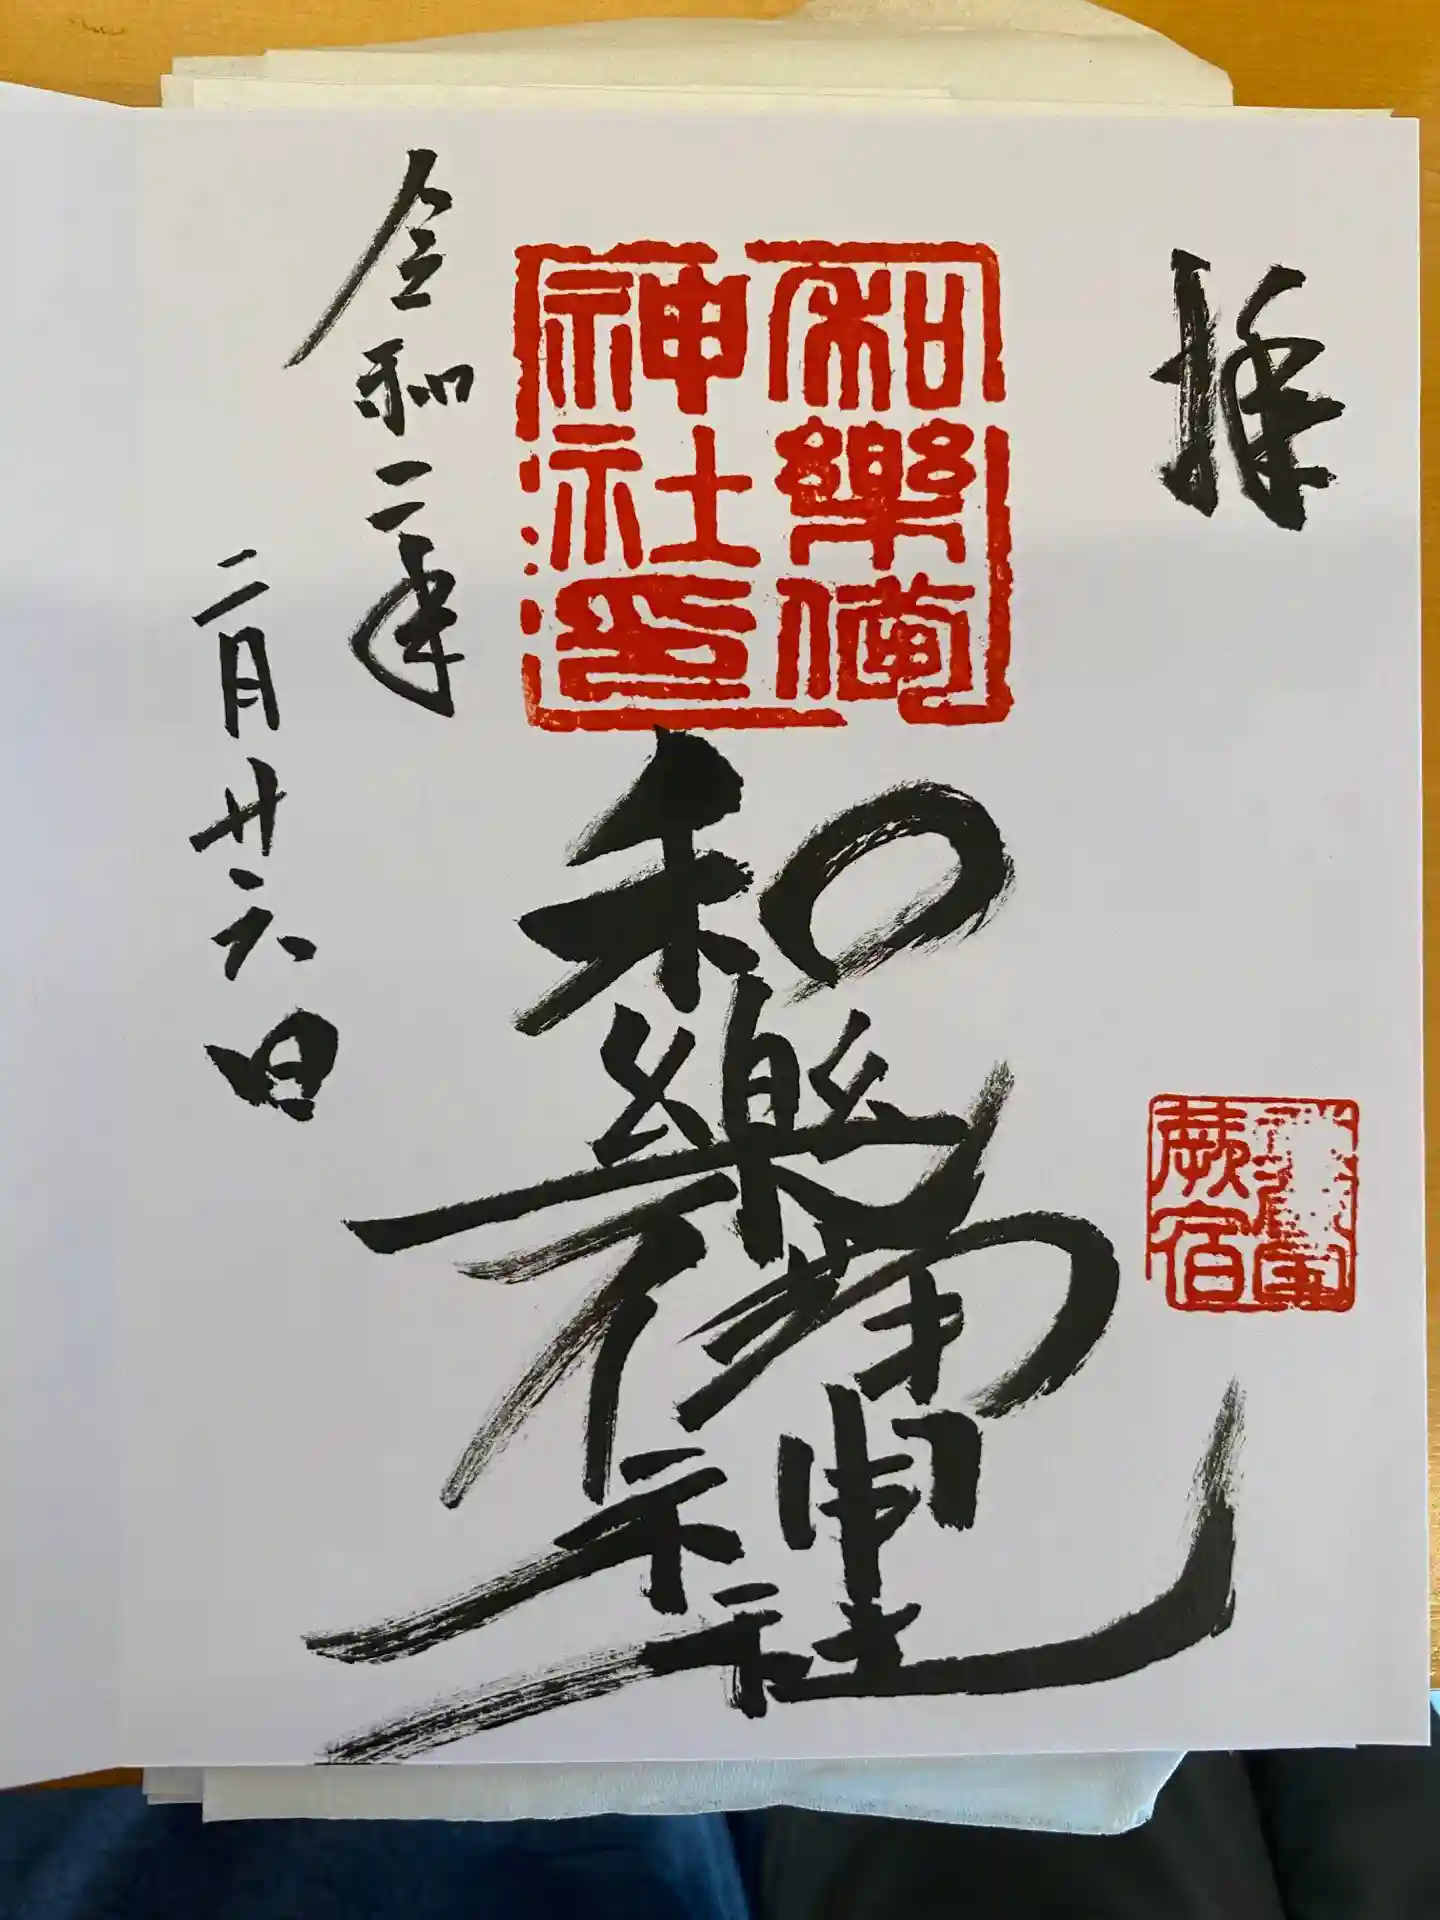 拝
和樂備
神社印
和樂備神社
蕨宿
令和二年
二月廿六日